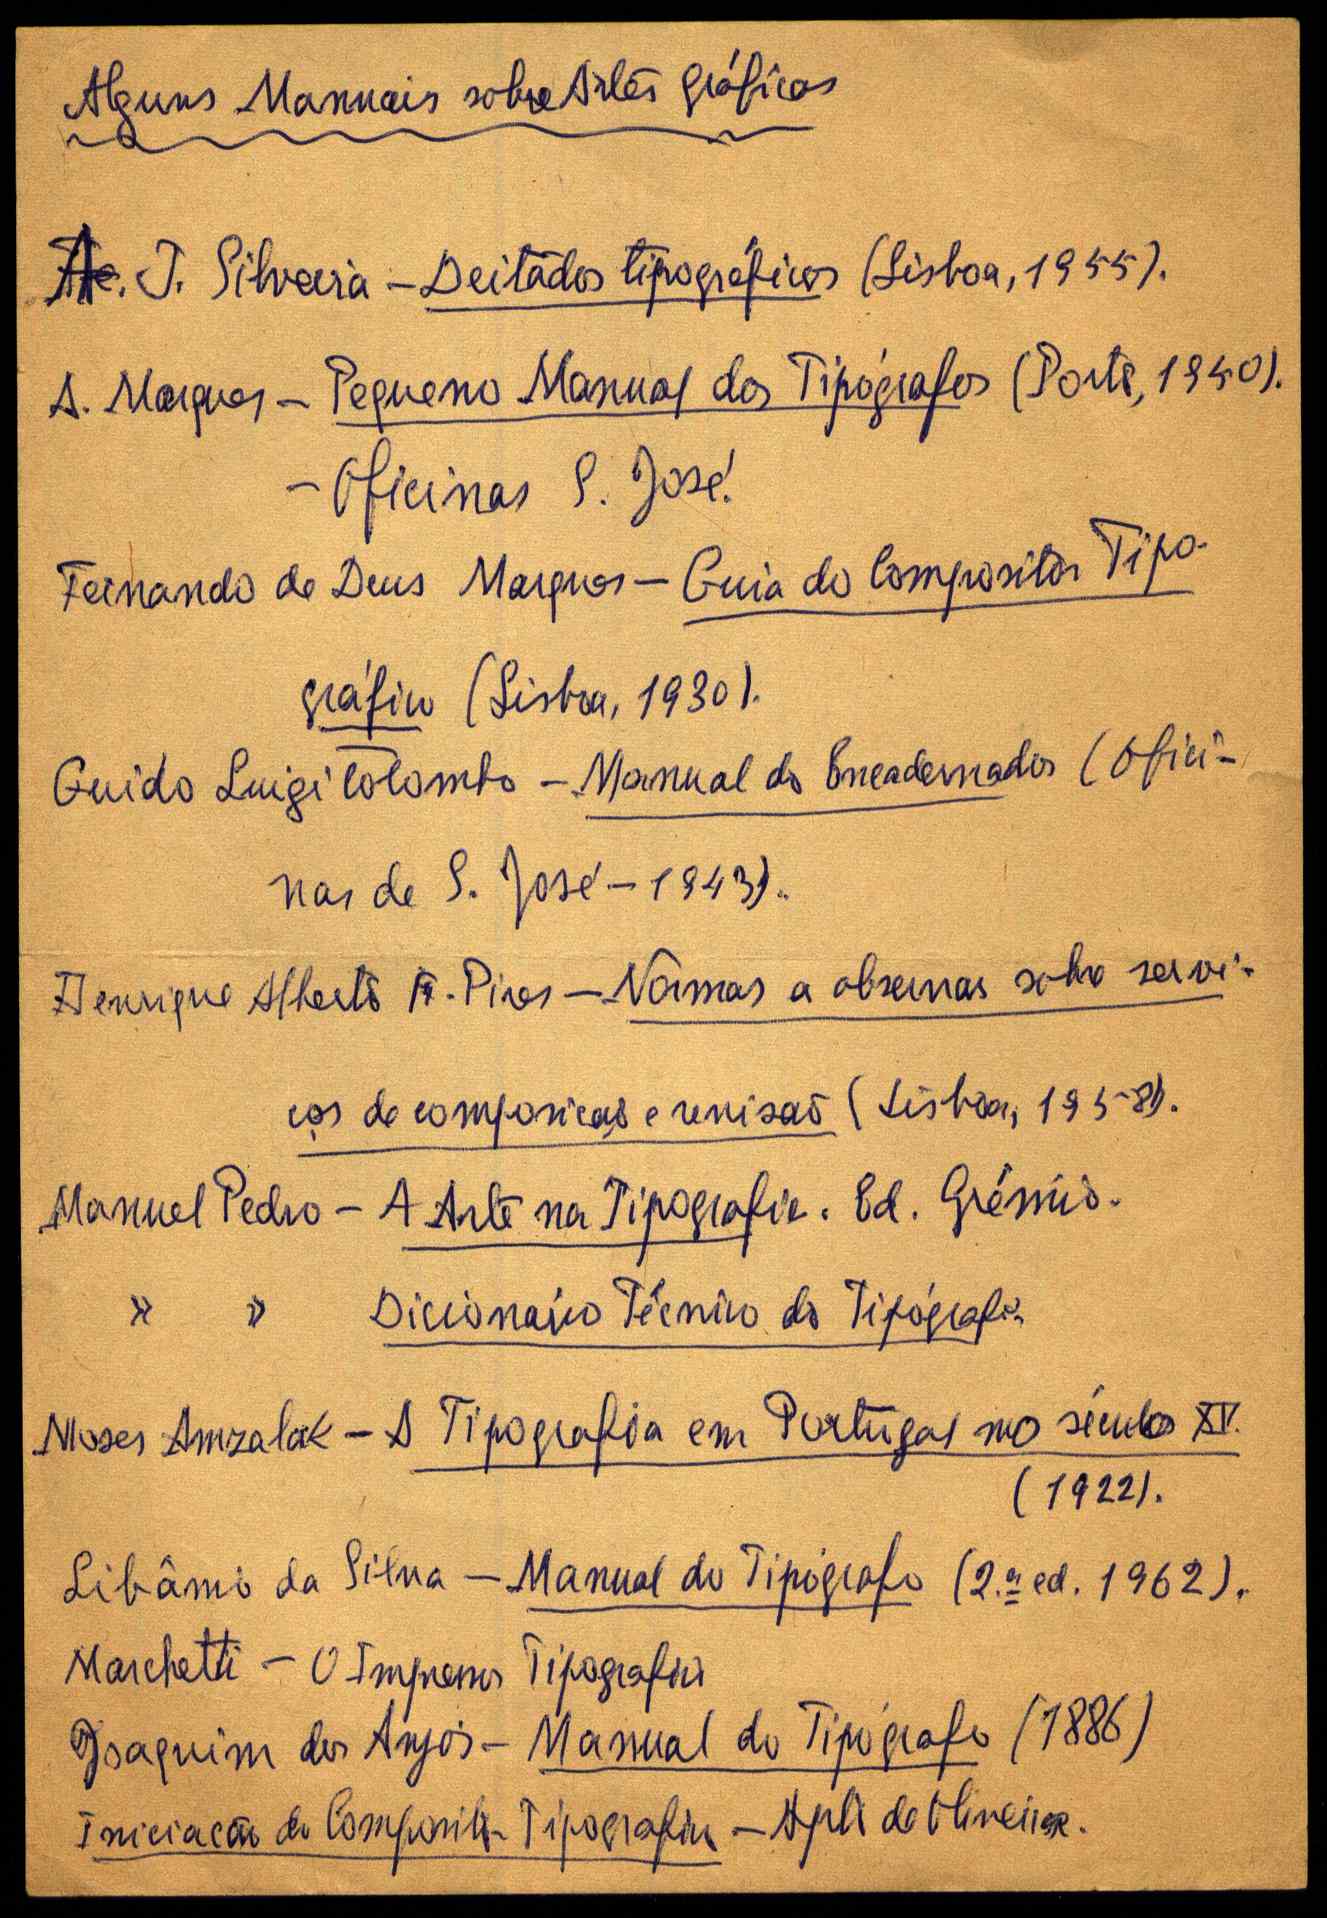 Alguns Manuais sobre Artes gráficas
A. J. Silveira – Deitados tipográficos (Lisboa, 1955).
A. Marques – Pequeno Manual dos Tipógrafos (Porto, 1950).
– Oficinas S. José.
Fernando de Deus Marques – Guia do Compositor Tipo-
gráfico (Lisboa, 1930).
Guido Luigi Colombo – Manual do Encadernador (Ofici-
nas de S. José – 1943).
Henrique Alberto F. Pires – Normas a observar sobre servi-
ços de composição e revisão (Lisboa, 1958).
Manuel Pedro – A Arte na Tipografia. Ed. Grémio.
» » Diccionário Técnico do Tipógrafo
Moses Amzalak – A Tipografia em Portugal no século XV.
(1922).
Libânio da Silva – Manual do Tipógrafo (2.ª ed. 1962).
Marchetti – O Impressor Tipografico
Joaquim dos Anjos – Manual do Tipógrafo (1886)
Iniciação do Compositor Tipografico – de Oliveira.